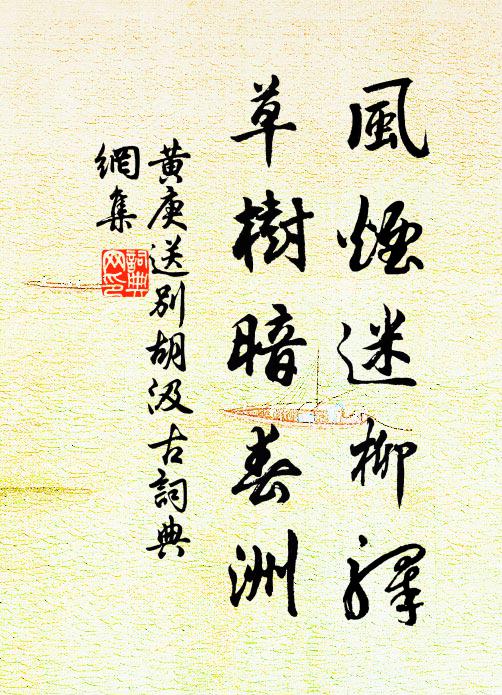 風煙迷柳驛
草樹暗春洲
黄庚送別胡汲古詞典
網集
詞典网印